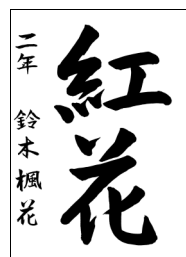 紅花
二年 鈴木楓花